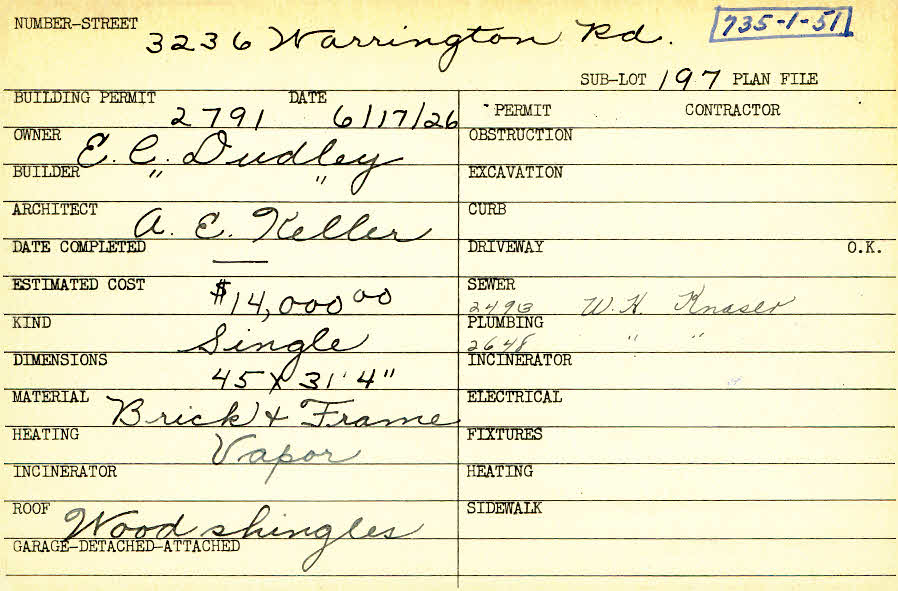 NUMBER-STREET 3236 Warrington Rd. 735-1-51
SUB-LOT 197 PLAN FILE
BUILDING PERMIT 2791 DATE 6/17/26
PERMIT CONTRACTOR
OWNER E. C. Dudley
OBSTRUCTION
BUILDER " "
EXCAVATION
ARCHITECT A. E. Keller
CURB
DATE COMPLETED —
DRIVEWAY O.K.
ESTIMATED COST $14,000 00
SEWER 2493 W. H. Knaser
KIND Single
PLUMBING 2648 " "
DIMENSIONS 45 X 31' 4"
INCINERATOR
MATERIAL Brick + Frame
ELECTRICAL
HEATING Vapor
FIXTURES
INCINERATOR
HEATING
ROOF Wood shingles
SIDEWALK
GARAGE-DETACHED-ATTACHED